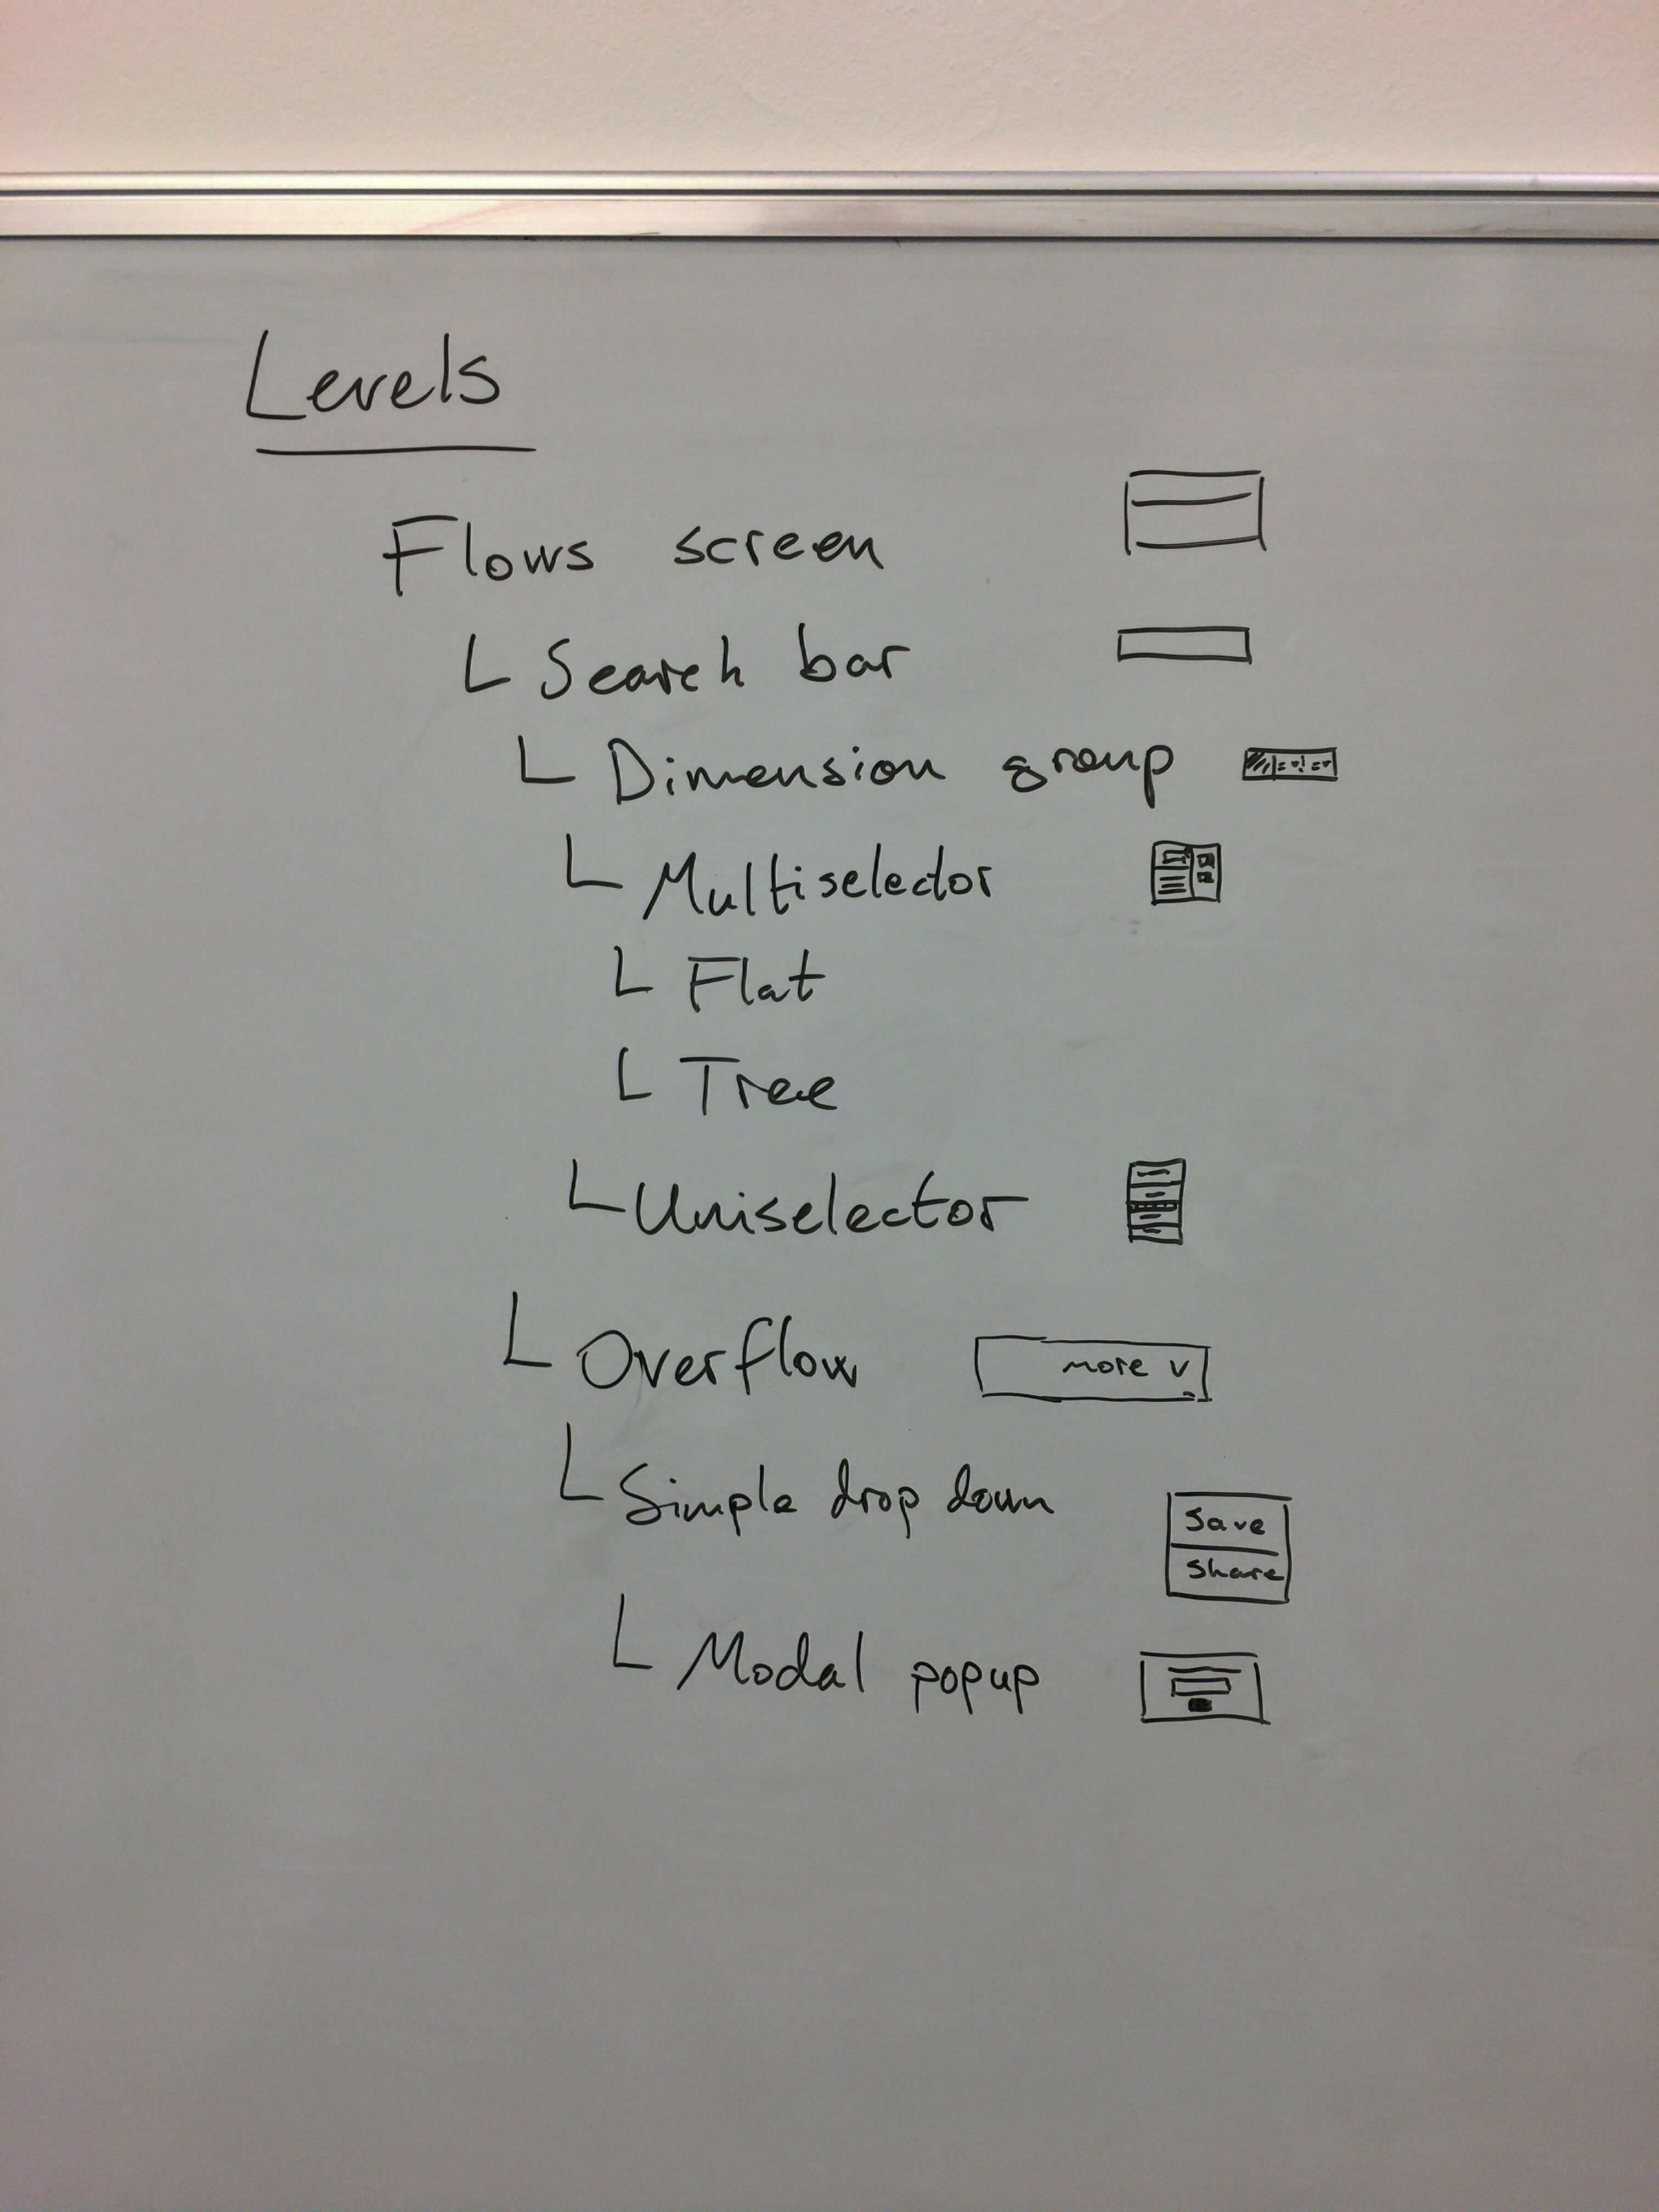 Levels
Flows screen
Search bar
Dimension group
Multiselector
Flat
Tree
Uniselector
Overflow more v
Simple drop down
Save
Share
Modal popup